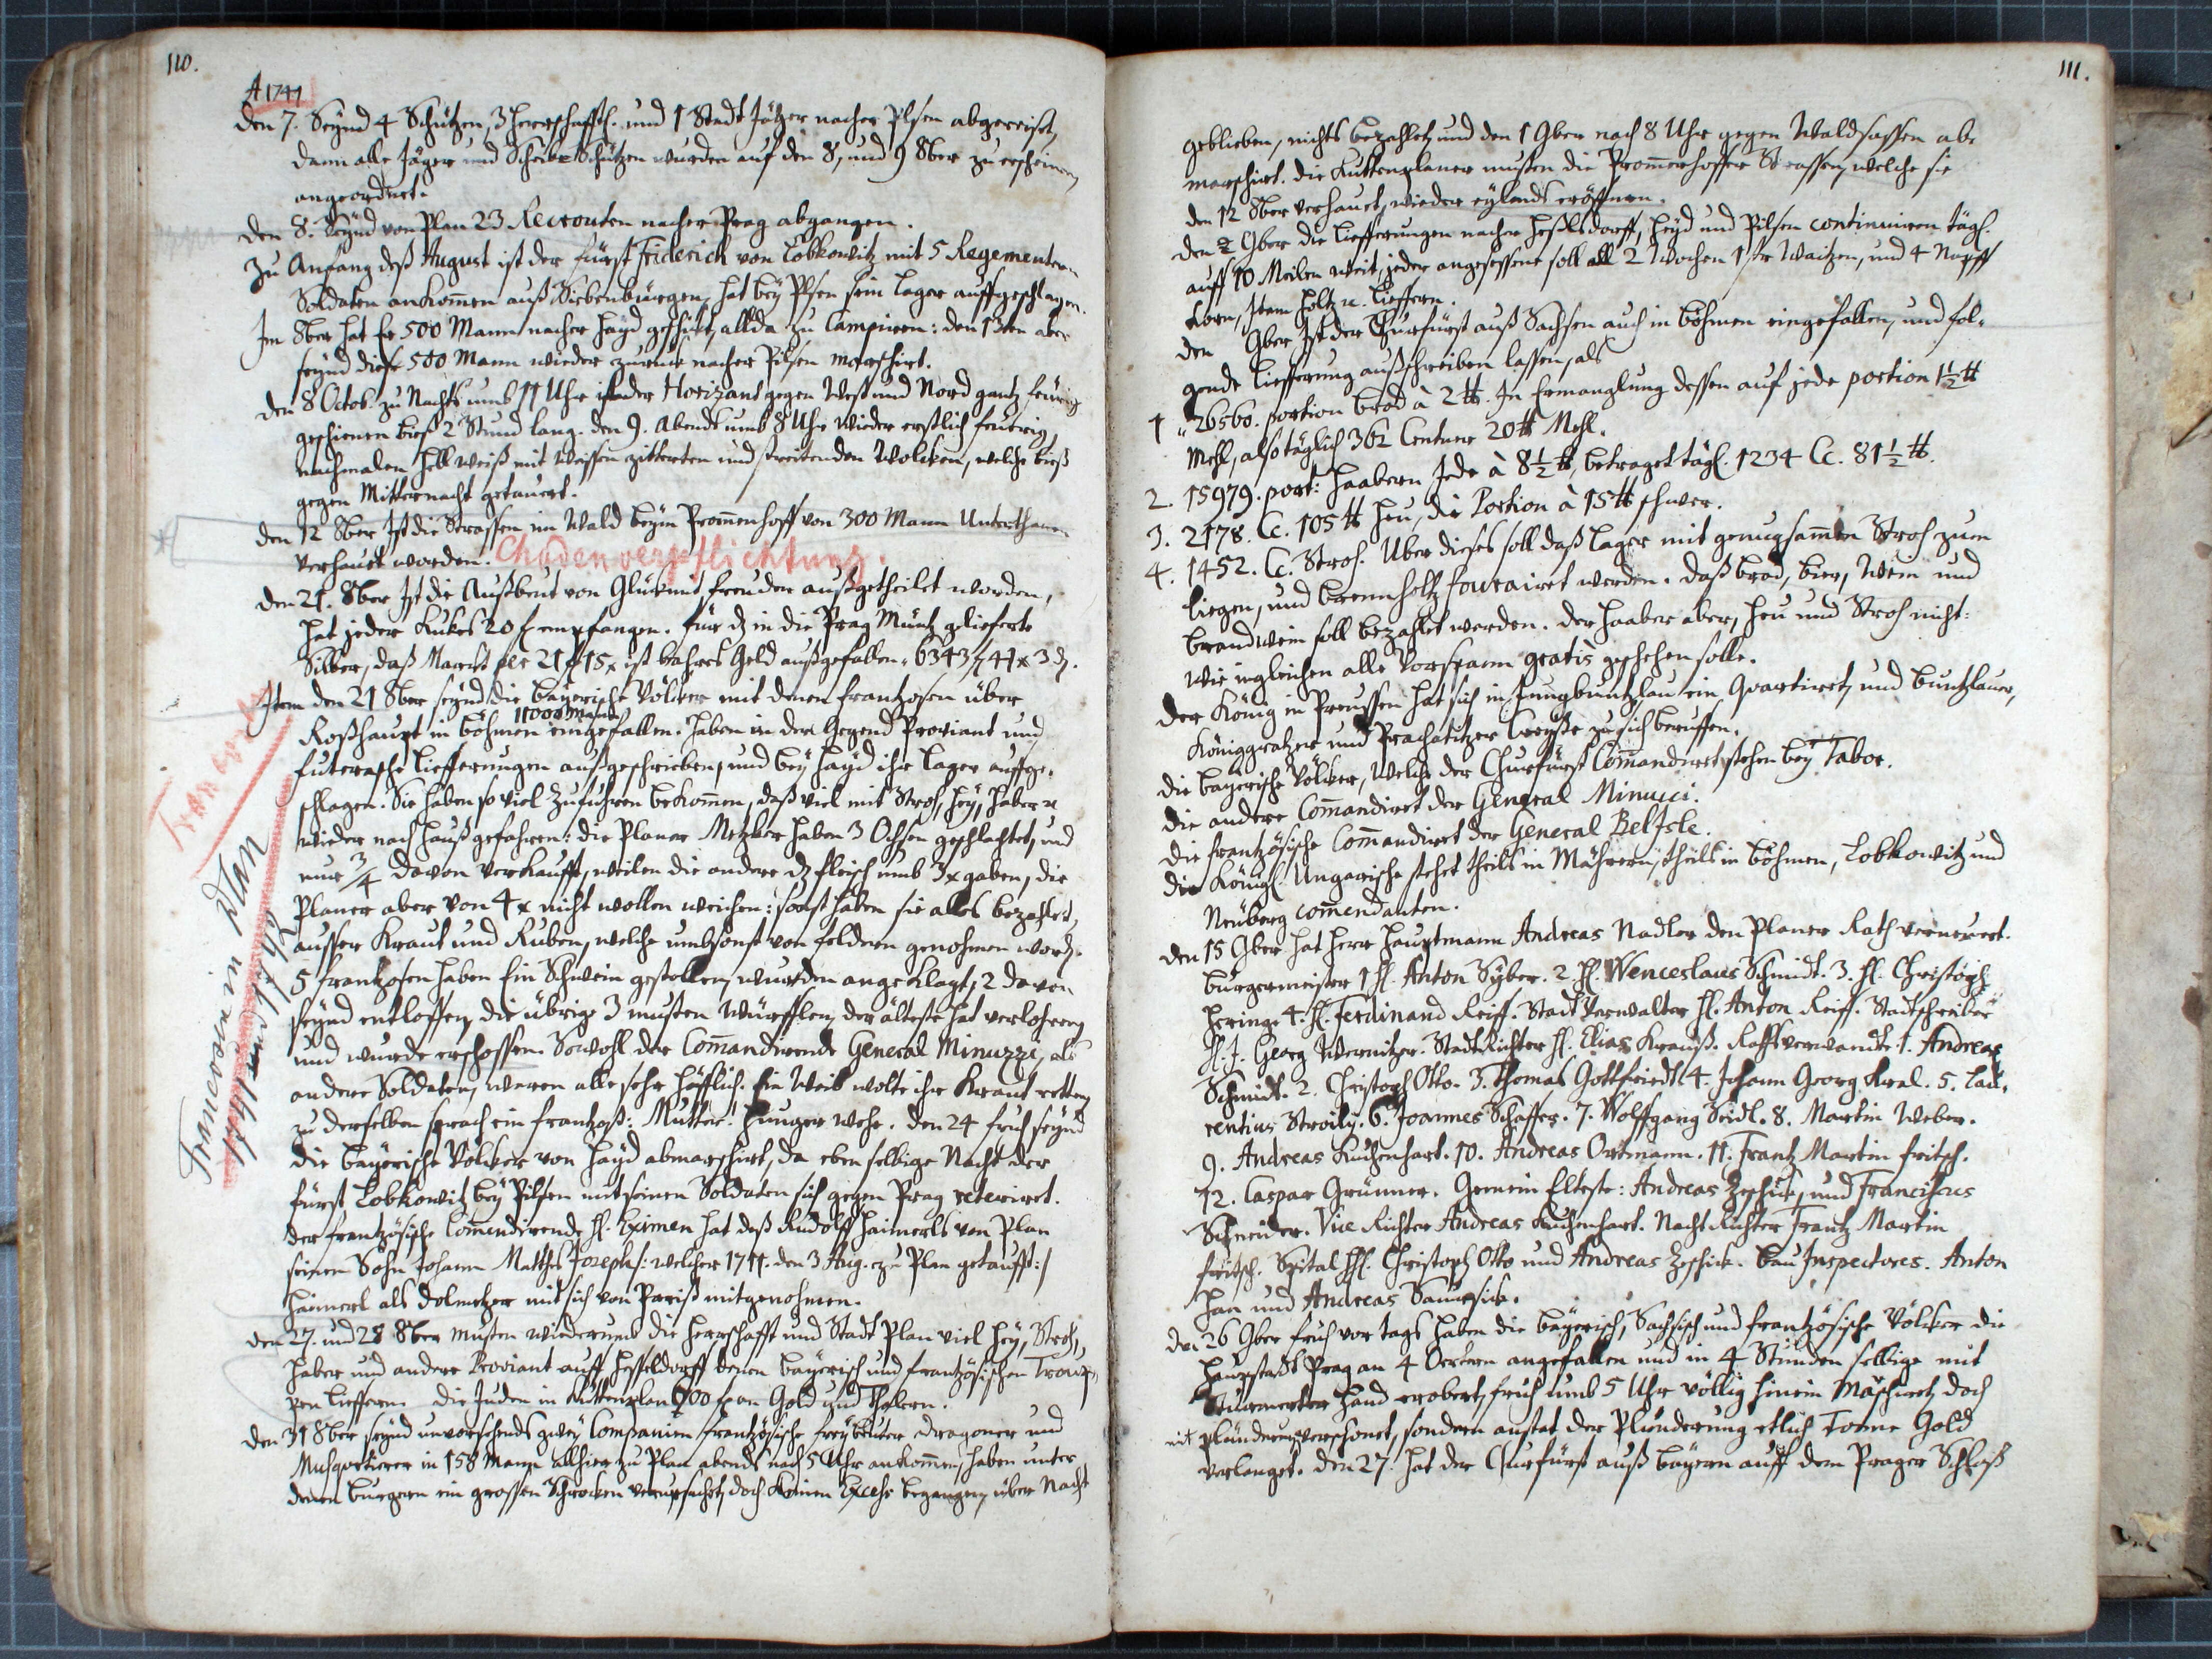 110.
A 1741
den 7. Seynd 4 Schützen, 3 Herrschafftl. und 1 Stadt Jäger nacher Pilsen abgereiset,
dann alle Jäger und Scheibe Schützen wurden auf den 8, und 9 8ber zu erscheinen
angeordnet.
den 8. Seynd von Plan 23 Recrouten nacher Prag abgangen.
Zu Anfang deß August ist der Fürst Friderich von Lobkowitz mit 5 Regementern
Soldaten ankommen auß Siebenbürgen, hat bey Pilsen sein Lager auffgeschlagen.
Im 8ber hat Er 500 Mann nacher Hayd geschickt, allda zu Campiren: den 13ten aber
seynd diese 500 Mann wieder zuruck nacher Pilsen marschirt.
den 8 Octob. zu Nachts umb 11 Uhr ist der Horizont gegen West und Nord gantz feürig
geschienen bieß 2 Stund lang. den 9. Abends umb 8 Uhr wieder erstlich feüerig
nachmalen hell weiß mit weissen zitterten und streitenden Wolcken, welche bieß
gegen Mitternacht getauert.
den 12 8ber Ist die Strassen im Wald beym Promenhoff von 300 Mann Unterthanen
verhauet worden. Chodenverpflichtung.
den 21. 8ber Ist die Außbeut von Glück mit Freuden außgetheilet worden,
hat jeder Kukes 20 f empfangen. für dz in die Prag Müntz gelieferte
Silber, daß Marck per 21 f 15 x ist bahres Geld außgefallen 6343 f 41 x 3 d.
Item den 21 8ber seynd die bayerische Völcker mit denen Frantzosen über
11000 Mann
Roßhaupt in Böhmen eingefallen. haben in der Gegend Proviant und
Futerasche Liefferungen außgeschrieben, und bey Hayd ihr Lager auffge-
schlagen. Sie haben so viel Zufuhren bekommen, daß viel mit Stroh, Hey, Haber
wieder nach Hauß gefahren: die Planer Metzker haben 3 Ochsen geschlachtet, und
nur 3/4 davon verkaufft, weilen die andere dz Fleisch umb 3 x gaben, die
Planer aber von 4 x nicht wollen weichen: sonst haben sie alles bezahlet,
ausser Kraut und Ruben, welche umbsonst von Feldern genohmen word.
5 Frantzosen haben Ein Schwein gestollen, wurden angeklagt, 2 davon
seynd entloffen, die übrige 3 musten Würfflen, der älteste hat verlohren,
und wurde erschossen. Sowohl der Commandirende General Minuzzi, als
andere Soldaten, waren alle sehr höfflich. Ein Weib wolte ihr Kraut retten,
zu derselben sprach ein Frantzoß: Mutter! Hunger wehe. den 24 fruh seynd
die bayerische Völcker von Hayd abmarschirt, da eben selbige Nacht der
Fürst Lobkowitz bey Pilsen mit seinen Soldaten sich gegen Prag reteriret.
der frantzösische Commendirende H. Eximen hat deß Rudolff Haimerls von Plan
seinen Sohn Johann Matthes Joseph /: welcher 1711. den 3 Aug. zu Plan getaufft:/
Haimerl als Dolmetzer mit sich von Pariß mitgenohmen.
den 27. und 28 8ber musten wiederumb die Herrschafft und Stadt Plan viel Hey, Stroh,
Haber und andere Proviant auff Hesseldorff denen bayerisch und frantzösischen Troup-
pen lieffern. die Juden in Kuttenplan 600 f an Gold und Thalern.
den 31 8ber seynd unvorsehends zwey Companien frantzösische Freybeuter Dragoner und
Musquetierer in 158 Mann allhier zu Plan abends nach 5 Uhr ankommen, haben unter
denen Burgern ein grossen Schrocken verursachet, doch keinen Excess begangen, über Nacht
Franzosen
Franzosen in Plan
111.
geblieben, nichts bezahlet, und den 1 9ber nach 8 Uhr gegen Waldsassen ab-
marschirt. die Kuttenplaner musten die Promerhoffer Strassen, welche sie
den 12 8ber verhauet, wieder eylends eröffnen.
den 2 9ber die Liefferungen nacher Heßelsdorff, Heyd und Pilsen continuiren tägl.
auff 10 Meilen weit, jeder angesessene soll all 2 Wochen 1 str Waitzen, und 4 Napff
Korn, Item Holtz lieffern.
den 9ber Ist der Churfürst auß Sachsen auch in Böhmen eingefallen, und fol-
gende Liefferung außschreiben lassen, als
1. 26560. portion Brod à 2 ℔. In Ermanglung dessen auf jede portion 1½ ℔
Mehl, also täglich 362 Centner 20 ℔ Mehl.
2. 15979. port: Haabern Jede à 8½ ℔, betraget tägl. 1234 Cc. 81½ ℔.
3. 2178. Cc. 105 ℔ Heu, die Portion à 15 ℔ schwer.
4. 1452. Cc. Stroh. Uber dieses soll daß Lager mit genugsammen Stroh zum
liegen, und Brennholtz fourairet werden. daß Brod, Bier, Wein und
Brandwein soll bezahlet werden. der Haaber aber, Heu und Stroh nicht:
wie ingleichen alle Vorspann gratis geschehen solle.
der König in Preussen hat sich in Jungbuntzlau ein Quartiret, und Buntzlauer,
Königgrätzer und Prachatitzer Creyße zu sich beruffen.
die bayerische Völcker, welche der Churfürst Commandiret, stehen bey Tabor.
die andere Commandiret der General Minucci.
die frantzösische Commandiret der General BelIsle.
die Königl. Ungarische stehet theils in Mähren, theils in Böhmen, Lobkowitz und
Neüberg commendanten.
den 15 9ber hat Herr Hauptmann Andreas Nadler den Planer Rath verneuert.
Burgermeister 1 H. Anton Syber. 2. H. Wenceslaus Schmidt. 3. H. Christoph
Hering. 4. H. Ferdinand Reiff. Stadt Verwalter H. Anton Reiff. Stadtschreiber
H. J. Georg Wernitzer. Stadt Richter H. Elias Krauß. Rathsverwandte 1. Andreas
Schmidt. 2. Christoph Otto. 3. Thomas Gottfriedt. 4. Johann Georg Kral. 5. Lau-
rentius Stroily. 6. Joannes Schaffer. 7. Wolffgang Seidl. 8. Martin Weber.
9. Andreas Kuchenhart. 10. Andreas Ortmann. 11. Frantz Martin Fritsch.
12. Caspar Grünner. Gemein Elteste: Andreas Zeschick, und Franciscus
Schneider. Vice Richter Andreas Kuchenhart. Nacht Richter Frantz Martin
Fritsch. Spital HH. Christoph Otto und Andreas Zeschick. Bau Inspectores. Anton
Han und Andreas
den 26 9ber fruh vor tags haben die bayerisch, Sachsisch und frantzösische Völcker die
Hauptstadt Prag an 4 Oertern angefallen und in 4 Stunden selbige mit
Sturmender Hand erobert, fruh umb 5 Uhr völlig hinein marschiret, doch
mit Plünderung verschonet, sondern anstat der Plünderung etlich Tonne Gold
verlanget. den 27. hat der Churfürst auß Bayern auff dem Prager Schloß